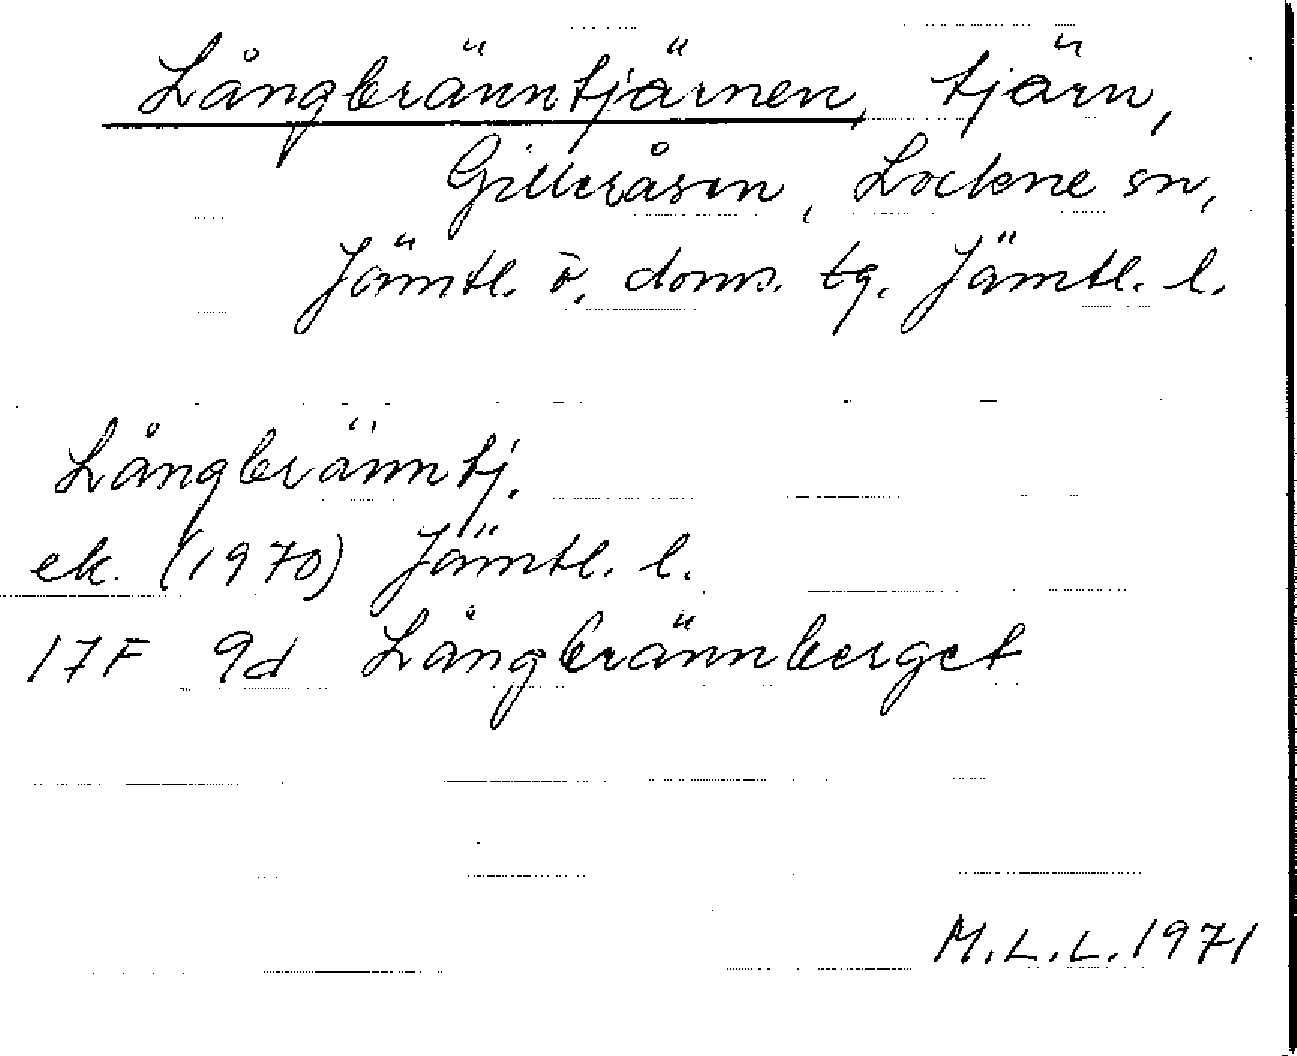 Långbränntjärnen, tjärn,
Gilleråsen, Lockne sn,
Jämtl. ö. doms. tg. Jämtl. l.
Långbränntj.
ek. (1970) Jämtl. l.
17F 9d Långbrännberget
M.L.L. 1971